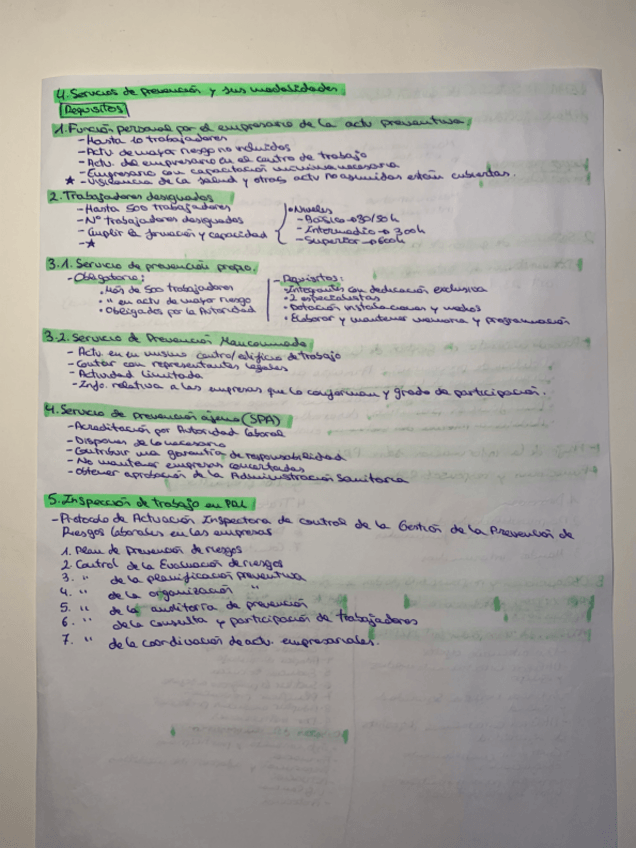 4. Servicios de prevención y sus modalidades.
Requisitos
1. Función personal por el empresario de la actv preventiva.
- Hasta 10 trabajadores
- Actv. de mayor riesgo no incluidos
- Actv. del empresario en el centro de trabajo
- Empresario con capacitación mínima necesaria
★ - Vigilancia de la salud y otras actv no asumidas están cubiertas.
2. Trabajadores designados
- Hasta 500 trabajadores
- Nº trabajadores designados
- Cumplir la formación y capacidad
- ★
• Niveles
- Básico → 30/50h
- Intermedio → 300h
- Superior → 600h
3.1. Servicio de prevención propio.
- Obligatorio:
• Más de 500 trabajadores
• " en actv de mayor riesgo
• Obligados por la Autoridad
- Requisitos:
• Integrantes con dedicación exclusiva
• 2 especialistas
• Dotación instalaciones y medios
• Elaborar y mantener memoria y programación
3.2. Servicio de Prevención Mancomunado
- Actv. en un mismo centro/edificio de trabajo
- Contar con representantes legales
- Actividad limitada
- Info. relativa a las empresas que lo conforman y grado de participación.
4. Servicio de prevención ajeno (SPA)
- Acreditación por Autoridad laboral
- Disponer de lo necesario
- Contribuir una garantía de responsabilidad
- No mantener empresas concertadas
- Obtener aprobación de la Administración Sanitaria
5. Inspección de trabajo en PRL
- Protocolo de Actuación Inspectora de control de la Gestión de la Prevención de
Riesgos laborales en las empresas
1. Plan de Prevención de riesgos
2. Control de la Evaluación de riesgos
3. " de la planificación preventiva
4. " de la organización "
5. " de la auditoría de prevención
6. " de la consulta y participación de trabajadores
7. " de la coordinación de actv. empresariales.